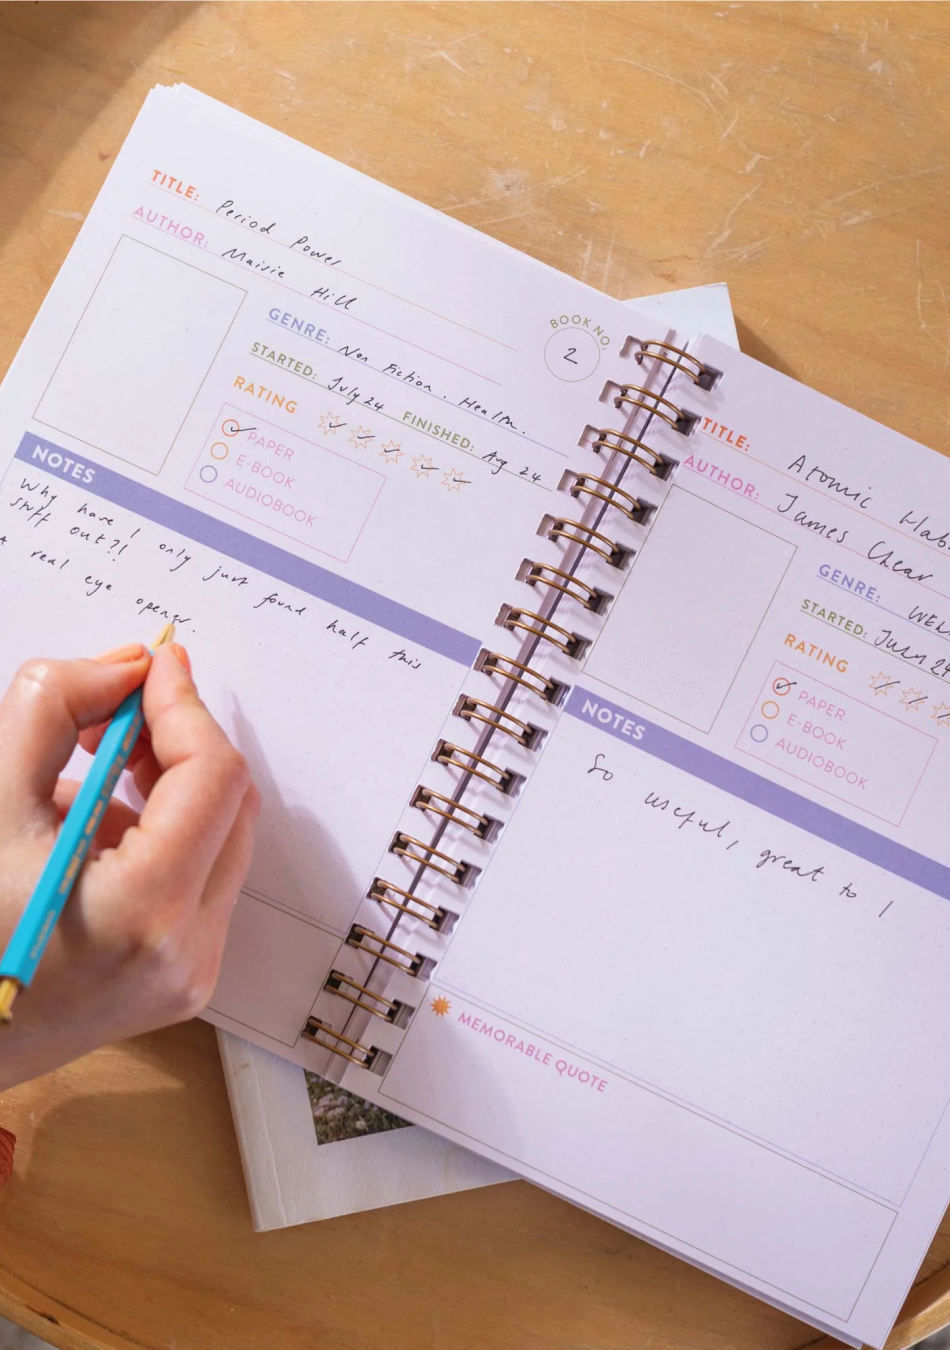 TITLE: Period Power
AUTHOR: Maisie Hill
BOOK NO
2
GENRE: Non Fiction. Health.
STARTED: July 24 FINISHED: Aug 24
RATING
PAPER
E-BOOK
AUDIOBOOK
NOTES
Why have I only just found half this
stuff out?!
A real eye opener.
TITLE: Atomic
AUTHOR: James Clear
GENRE:
STARTED:
RATING
PAPER
E-BOOK
AUDIOBOOK
NOTES
So useful, great to
MEMORABLE QUOTE